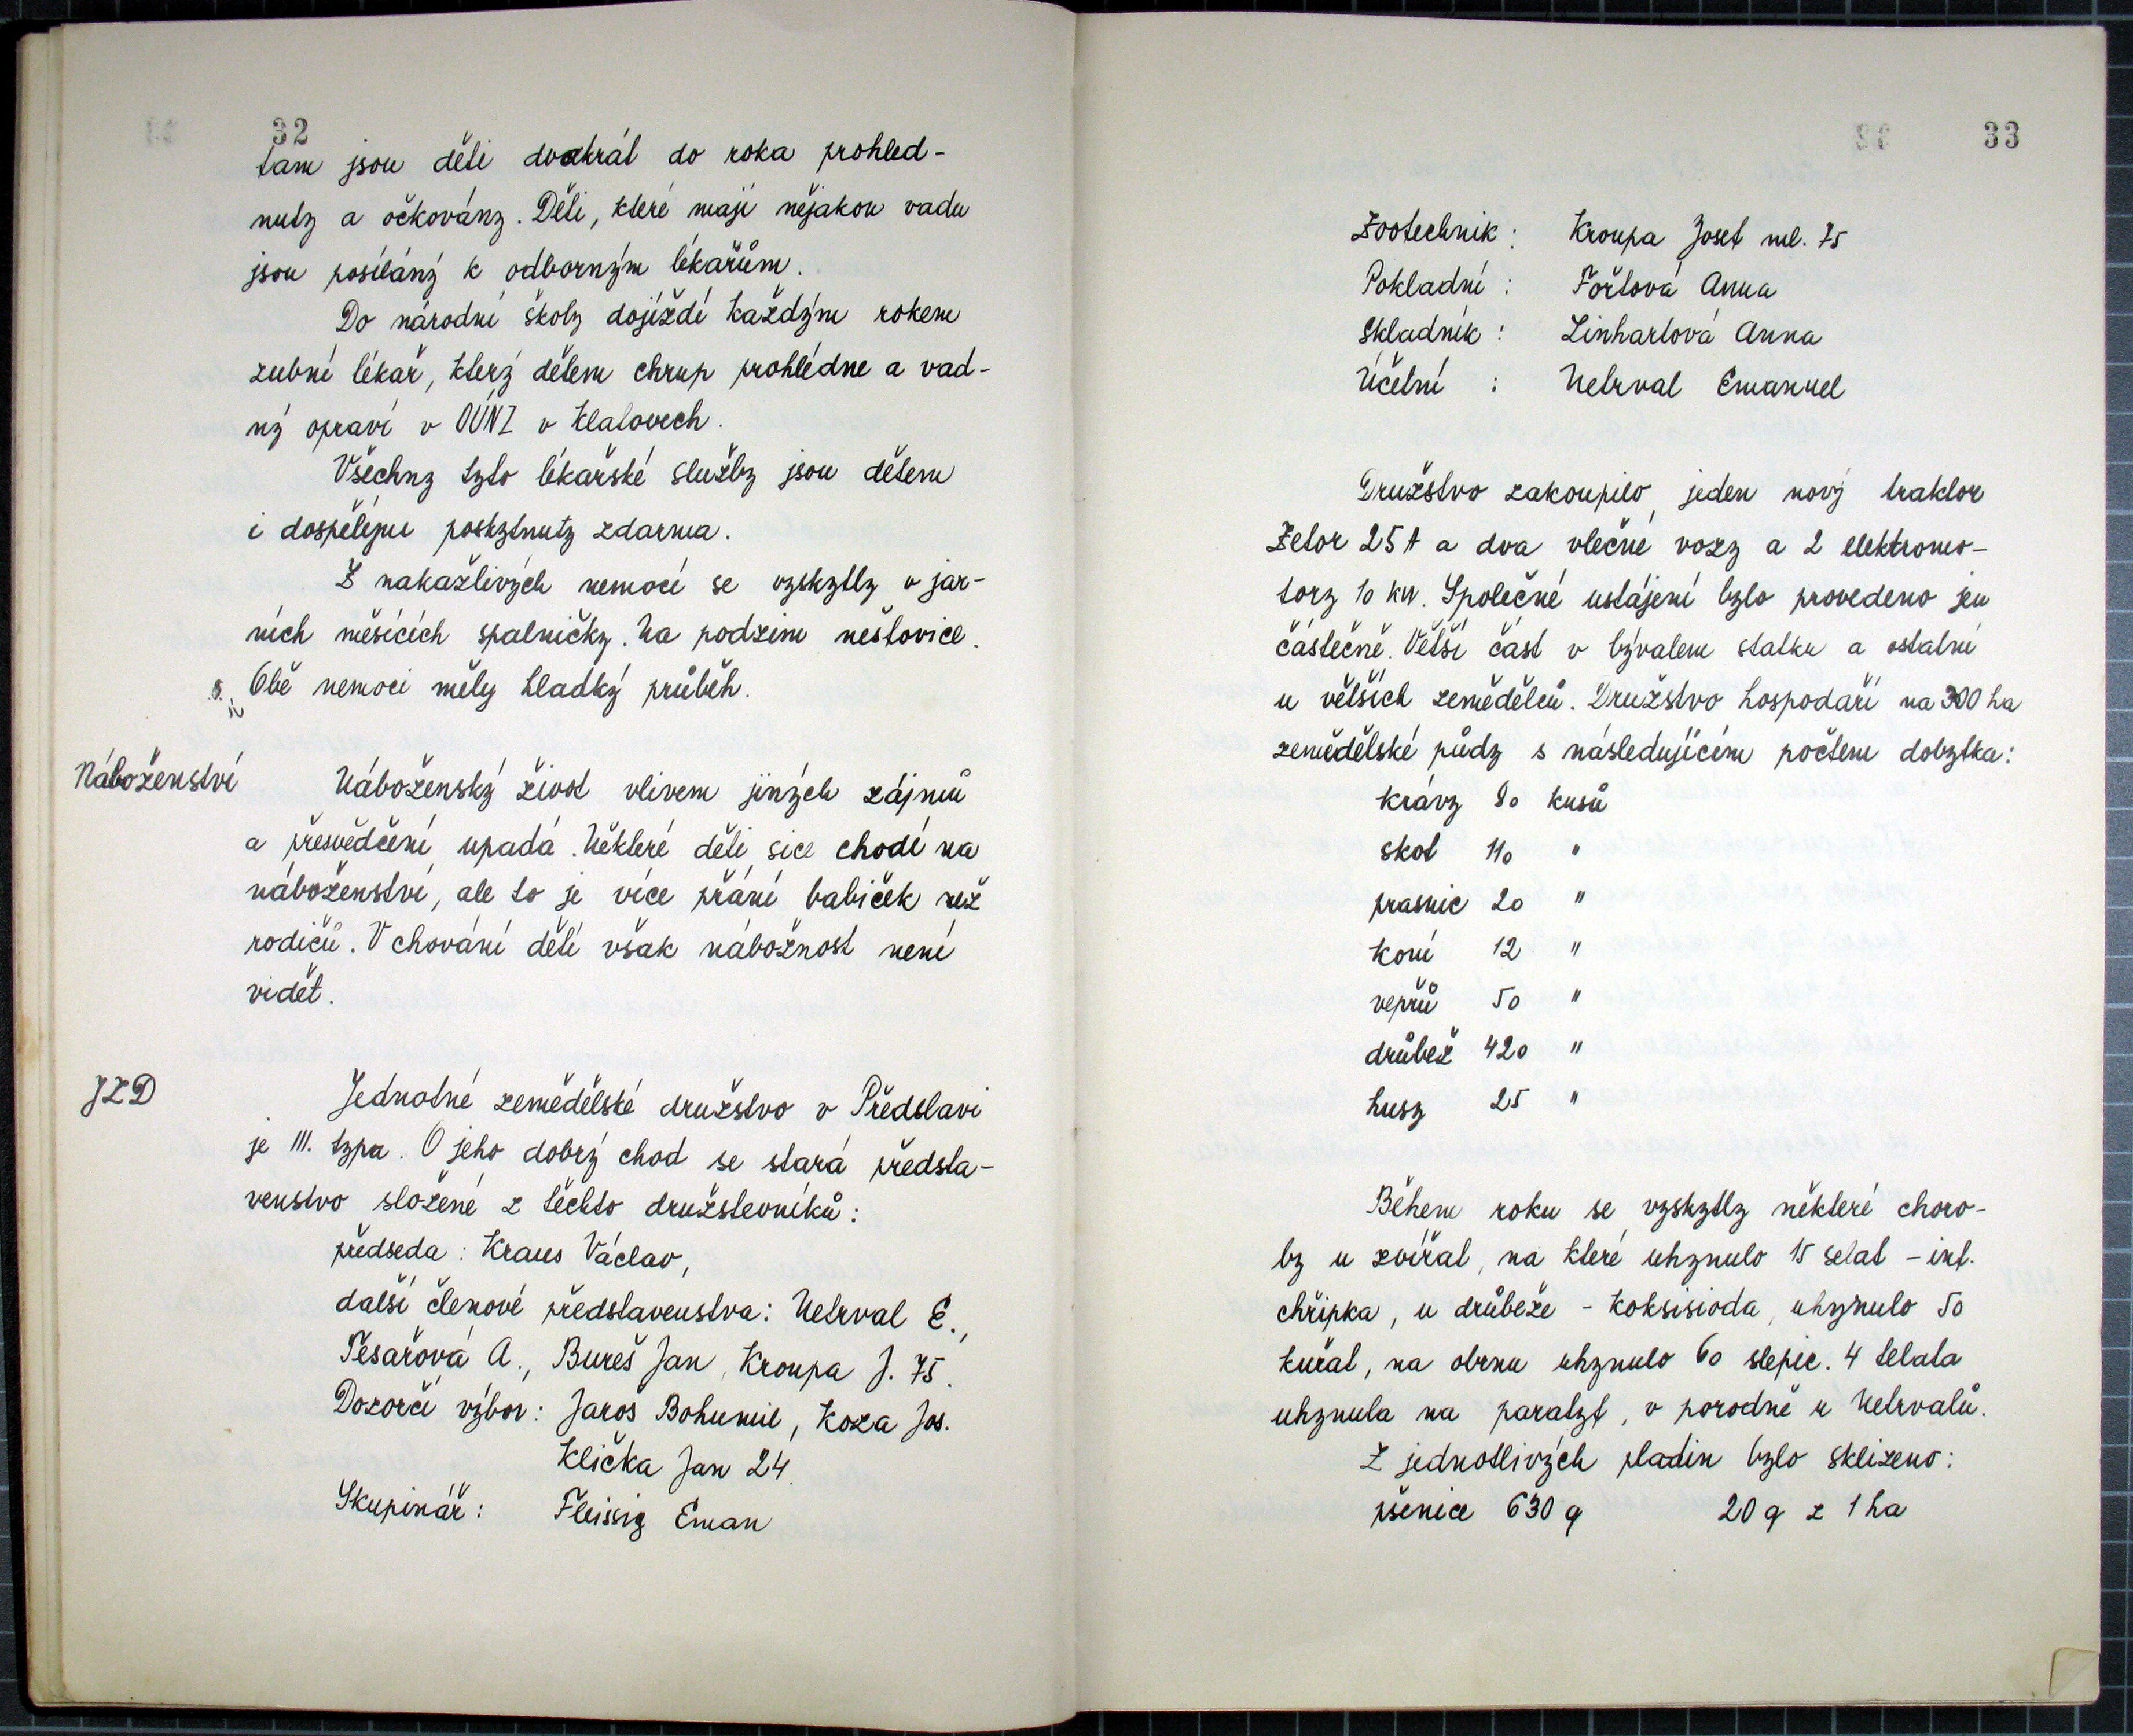 32
tam jsou děti dvakrát do roka prohled-
nuty a očkovány. Děti, které mají nějakou vadu
jsou posílány k odborným lékařům.
Do národní školy dojíždí každým rokem
zubní lékař, který dětem chrup prohlédne a vad-
ný opraví v OÚNZ v Klatovech.
Všechny tyto lékařské služby jsou dětem
i dospělým poskytnuty zdarma.
Z nakažlivých nemocí se vyskytly v jar-
ních měsících spalničky. Na podzim neštovice.
Obě nemoci měly hladký průběh.
Náboženství
Náboženský život vlivem jiných zájmů
a přesvědčení upadá. Některé děti sice chodí na
náboženství, ale to je více přání babiček než
rodičů. V chování dětí však nábožnost není
vidět.
JZD
Jednotné zemědělské družstvo v Předslavi
je III. typu. O jeho dobrý chod se stará předsta-
venstvo složené z těchto družstevníků:
předseda: Kraus Václav,
další členové představenstva: Netrval E.,
Tesařová A., Bureš Jan, Kroupa J. 75.
Dozorčí výbor: Jaroš Bohumil, Koza Jos.
Klička Jan 24
Skupinář: Fleissig Eman
33
Zootechnik: Kroupa Josef ml. 75
Pokladní: Fořtová Anna
Skladník: Linhartová Anna
Účetní: Netrval Emanuel
Družstvo zakoupilo jeden nový traktor
Zetor 25 A a dva vlečné vozy a 2 elektromo-
tory 10 kW. Společné ustájení bylo provedeno jen
částečně. Větší část v bývalem statku a ostatní
u větších zemědělců. Družstvo hospodaří na 300 ha
zemědělské půdy s následujícím počtem dobytka:
krávy 90 kusů
skot 110 "
prasnic 20 "
koní 12 "
vepřů 50 "
drůbež 420 "
husy 25 "
Během roku se vyskytly některé choro-
by u zvířat, na které uhynulo 15 selat - inf.
chřipka, u drůbeže - koksisioda, uhynulo 50
kuřat, na obrnu uhynulo 60 slepic. 4 telata
uhynula na paratyf, v porodně u Netrvalů.
Z jednotlivých plodin bylo sklizeno:
pšenice 630 q 20 q z 1 ha